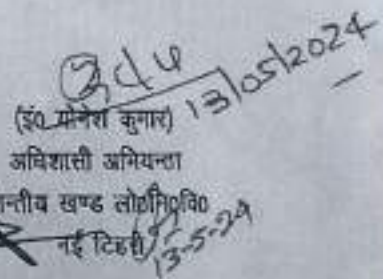 13/05/2024
(इं0 योगेश कुमार)
अधिशासी अभियन्ता
न्तीय खण्ड लो0नि0वि0
नई टिहरी
13-5-24